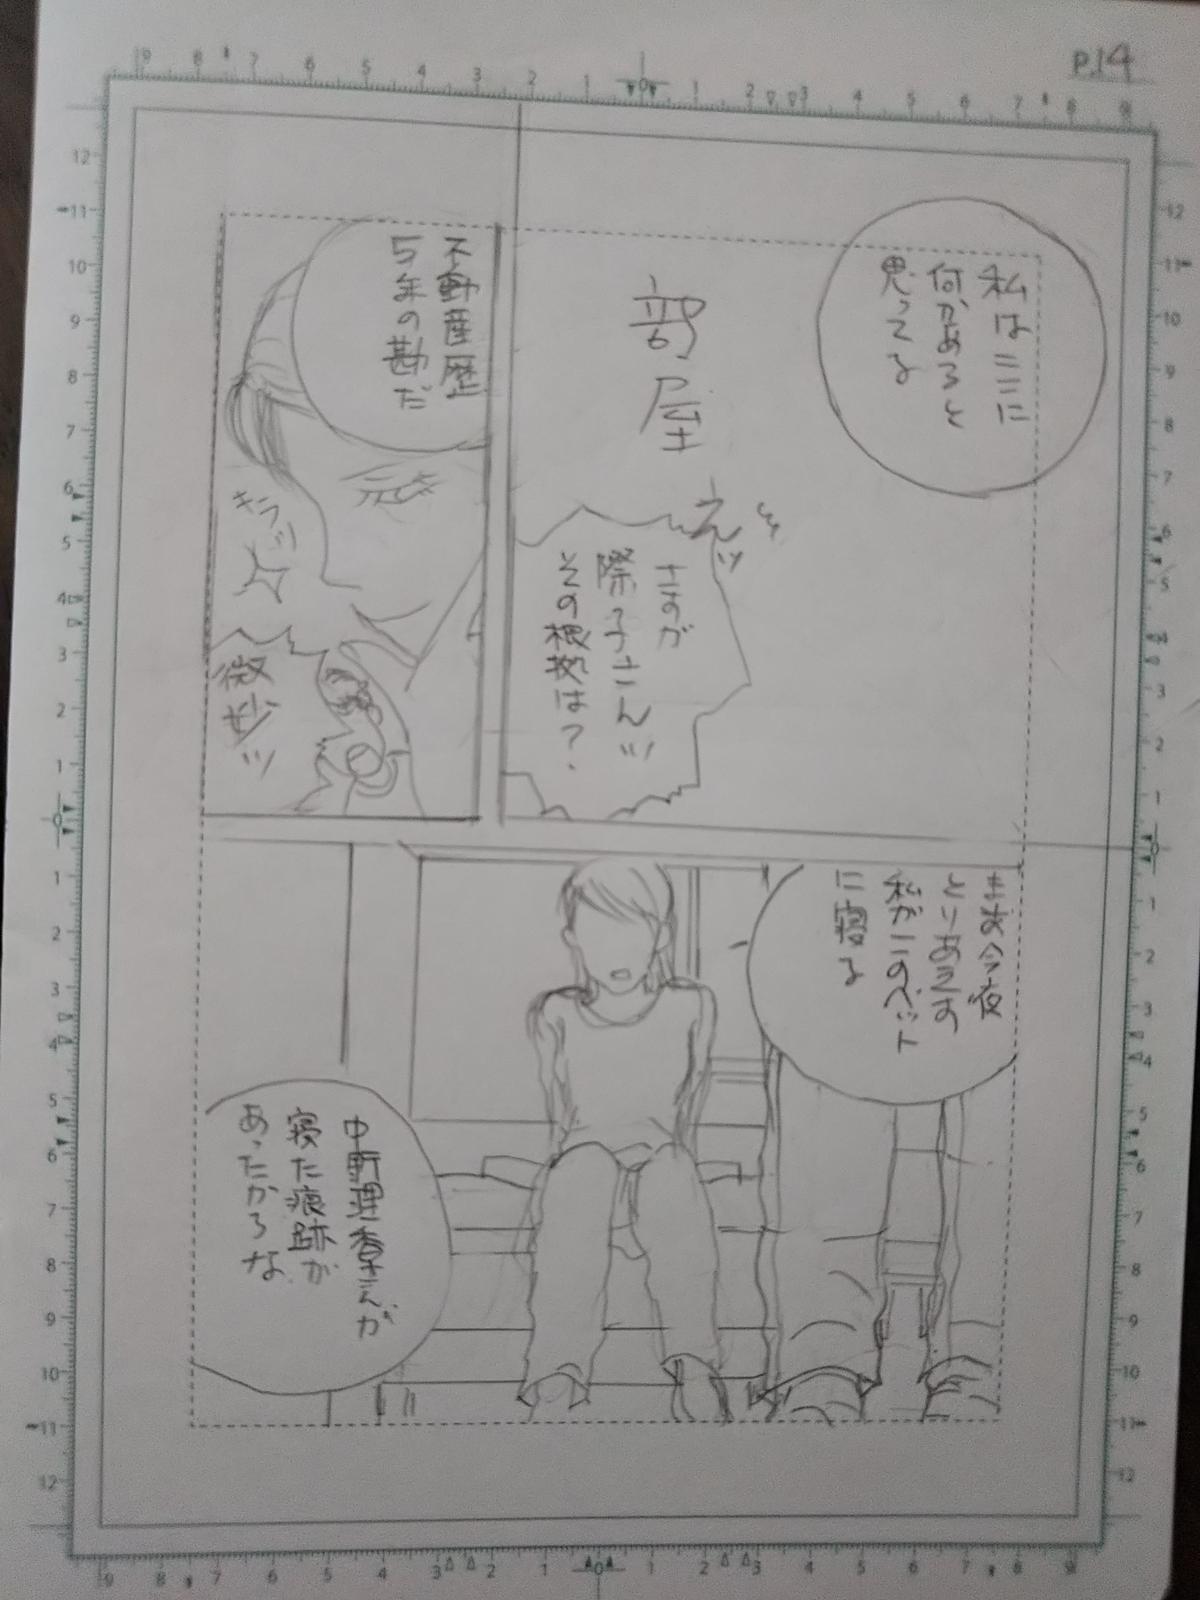 P.14
私はここに
何かあると
思ってる
部屋
えッ
さすが
際子さんッ
その根拠は?
不動産歴
5年の勘だ
キラッ
微妙ッ
まあ今夜
とりあえず
私がこのベット
に寝る
中野理香さんが
寝た痕跡が
あったからな